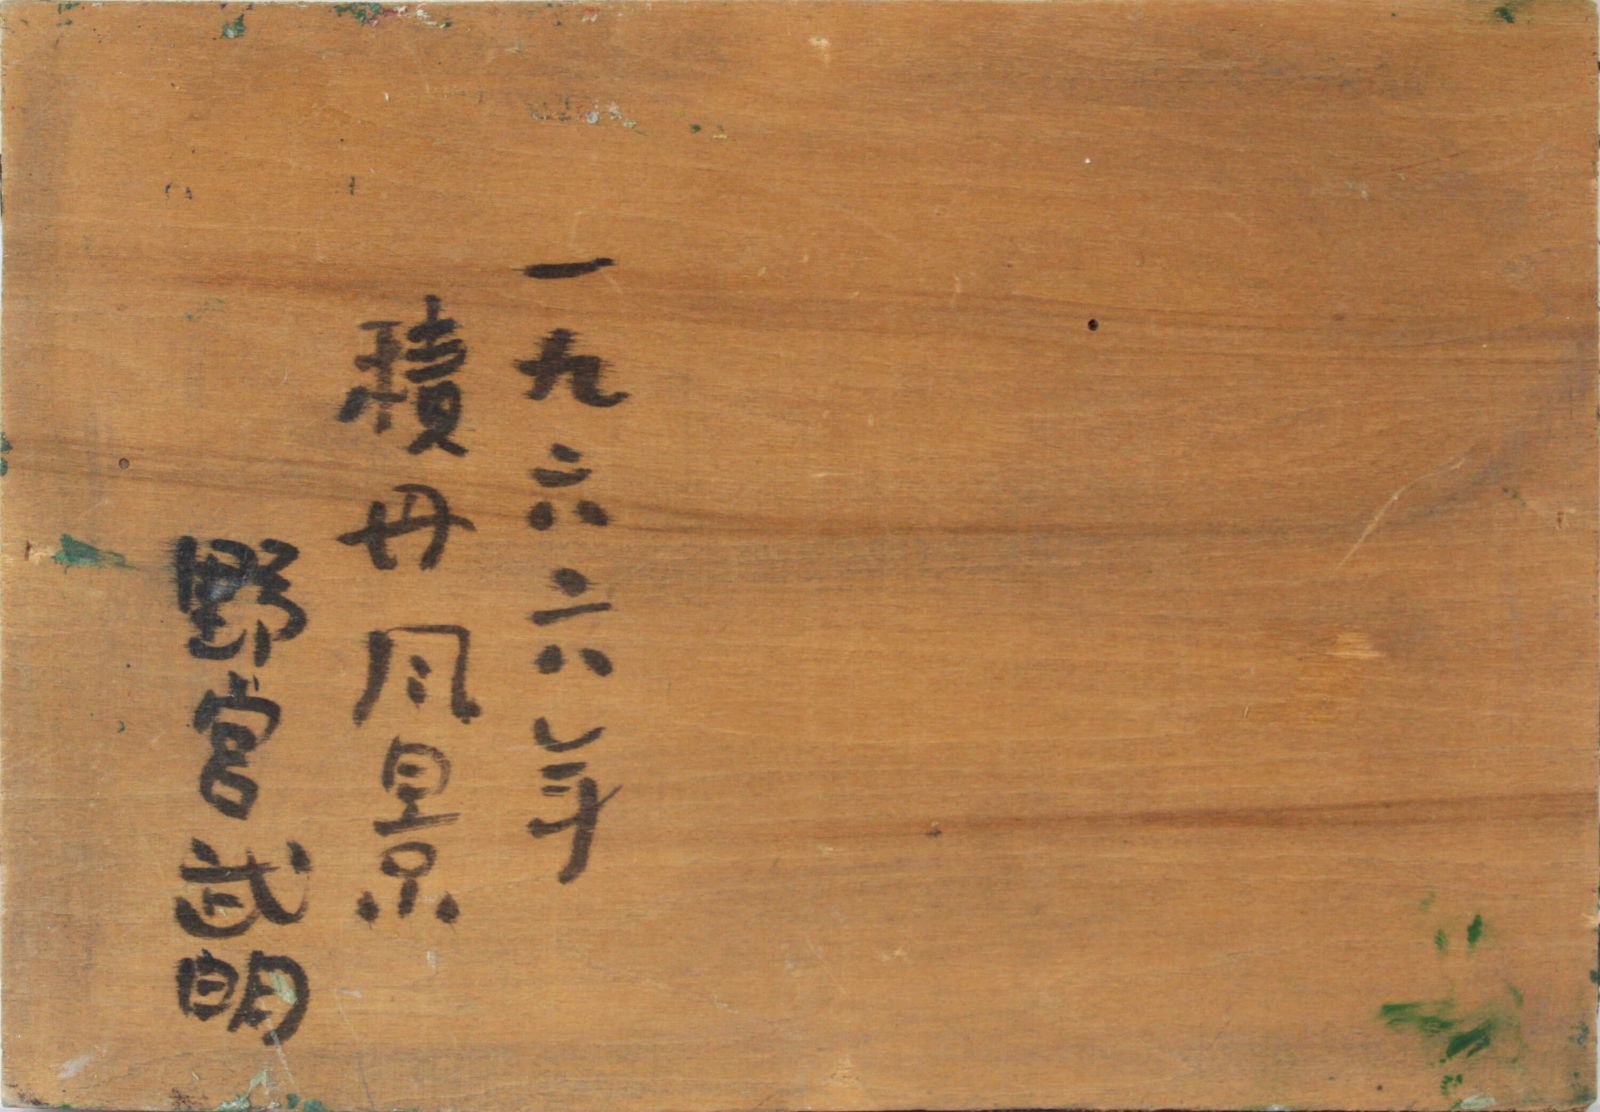 一九六六年
積丹風景
野宮武明